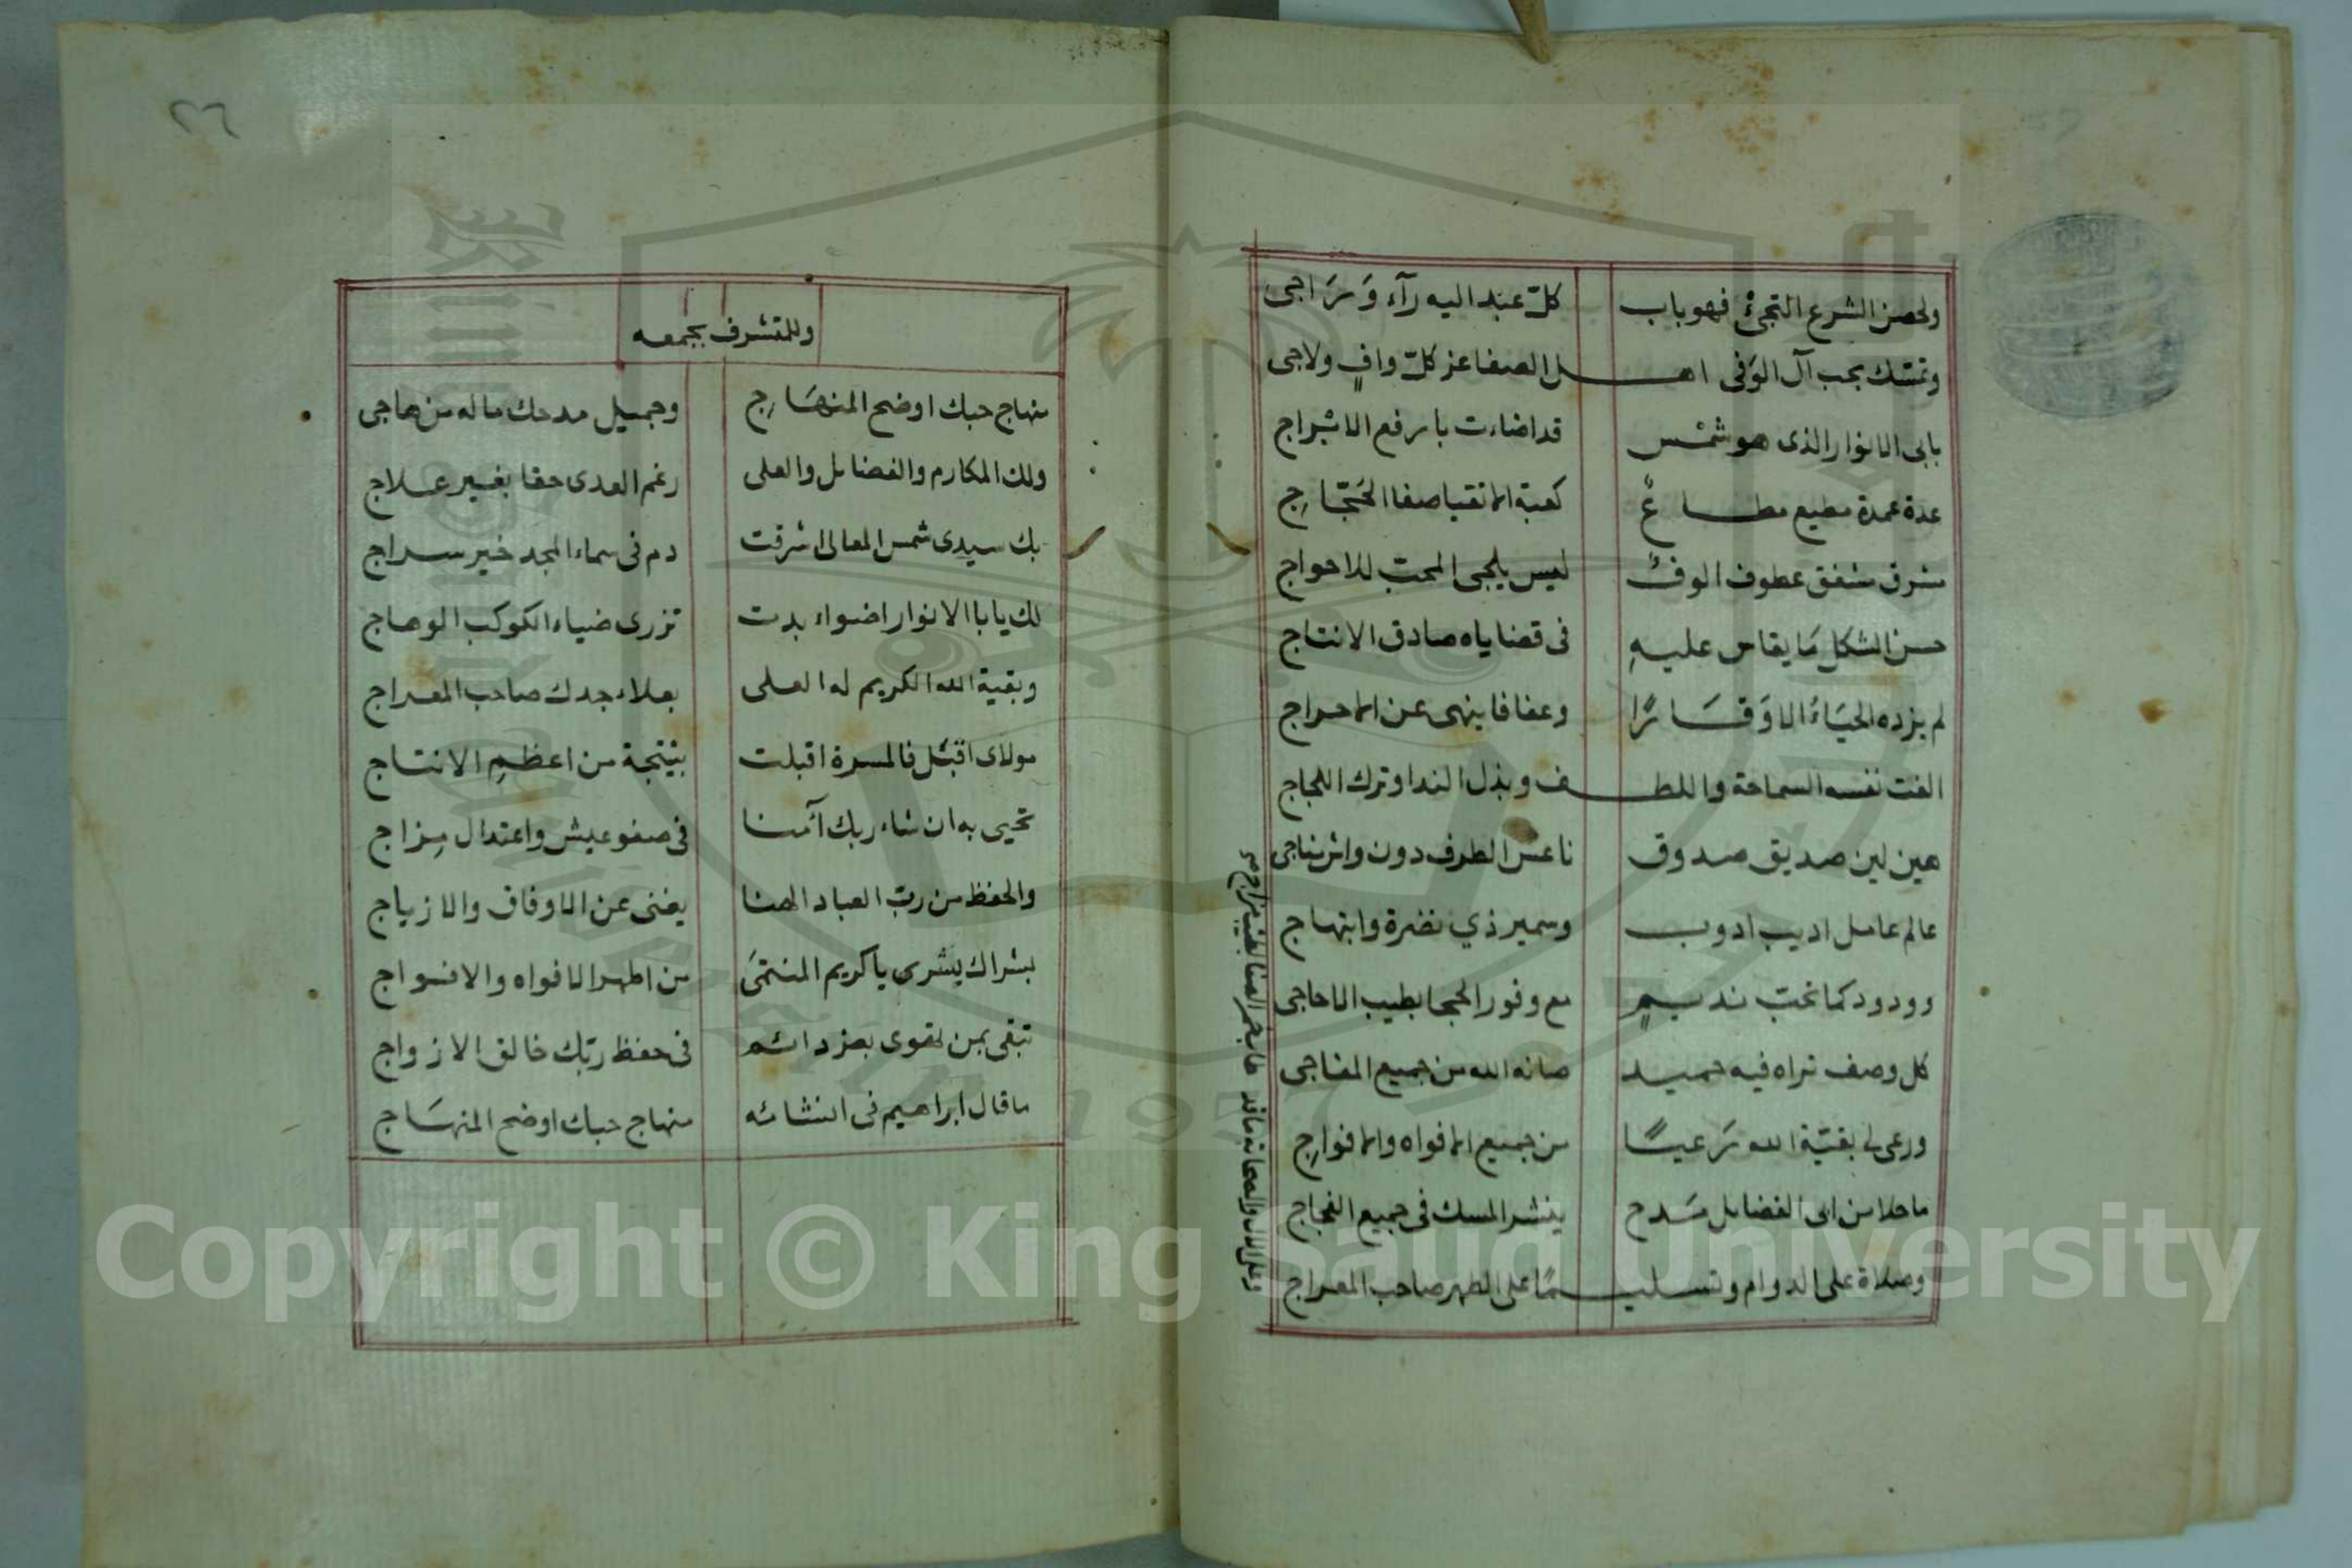 ولحصن الشرع التجئ فهو باب كلّ عبد اليه رآء وَرَاجى
وتمسّك بحب آل الوفى اهل الصفا عز كلّ وافٍ ولاجى
بابى الانوار الذى هو شمْس قد اضاءت بارفع الابْراج
عدة عمدة مطيع مطاعٌ كعبة الاتقيا صفا الحُجّاج
مشرق مشفق عطوف الوفٌ ليس يلجى المحب للاحواج
حسن الشكل مَا يقاس عليهِ فى قضاياه صادق الانتاج
لم يزده الحيَاءُ الا وَقَارًا وعفافا ينهى عن الاحراج
الفت نفسه السماحة واللطف وبذل الندا وترك اللجاج
هين لين صديق صدوق ناعس الطرف دون
عالم عامل اديب ادوب وسمير ذي نضرة وابتهاج
وودود كما تحب نديمٍ مع وفور الحجا بطيب الاحاجى
كل وصف تراه فيه حميد صانه الله من جميع المفاجى
ورعى لى بقيّة الله رَعيًا من جميع الافواه والافواجِ
ما حلا من ابى الفضايل مَدح ينشر المسك فى جميع الفجاج
وصلاة على الدوام وتسليمًا على الطهر صاحب المعراج
وعلى الال والصحابة ما قد طاب خمر الصفا بطيب مزاج
٢٦
وللمتشرف بجمعه
منهاج حبك اوضح المنهَاجِ وجميل مدحك ماله من هاجى
ولك المكارم والفضايل والعلى رغم العدى حقا بغير علاج
بك سيدى شمس المعالى اشرقت دم فى سماء المجد خير سراج
لك يا ابا الانوار اضواء بدت تزرى ضياء الكوكب الوهاج
وبقية الله الكريم له العلى بعلاء جدك صاحب المعراج
مولاى اقبَل فالمسرة اقبلت بنتيجة من اعظمِ الانتاج
تحيى به ان شاء ربك آمنا فى صفو عيش واعتدال مِزاج
والحفظ من ربّ العباد الهنا يغنى عن الاوفاق والازياج
بشراك بشرى يا كريم المنتمَى من اطهر الافواه والافواج
تبقى بمن تهوى بعز دائم فى حفظ ربّك خالق الازواج
ما قال ابراهيم فى انشائه منهاج حبك اوضح المنهَاج
Copyright © King Saud University